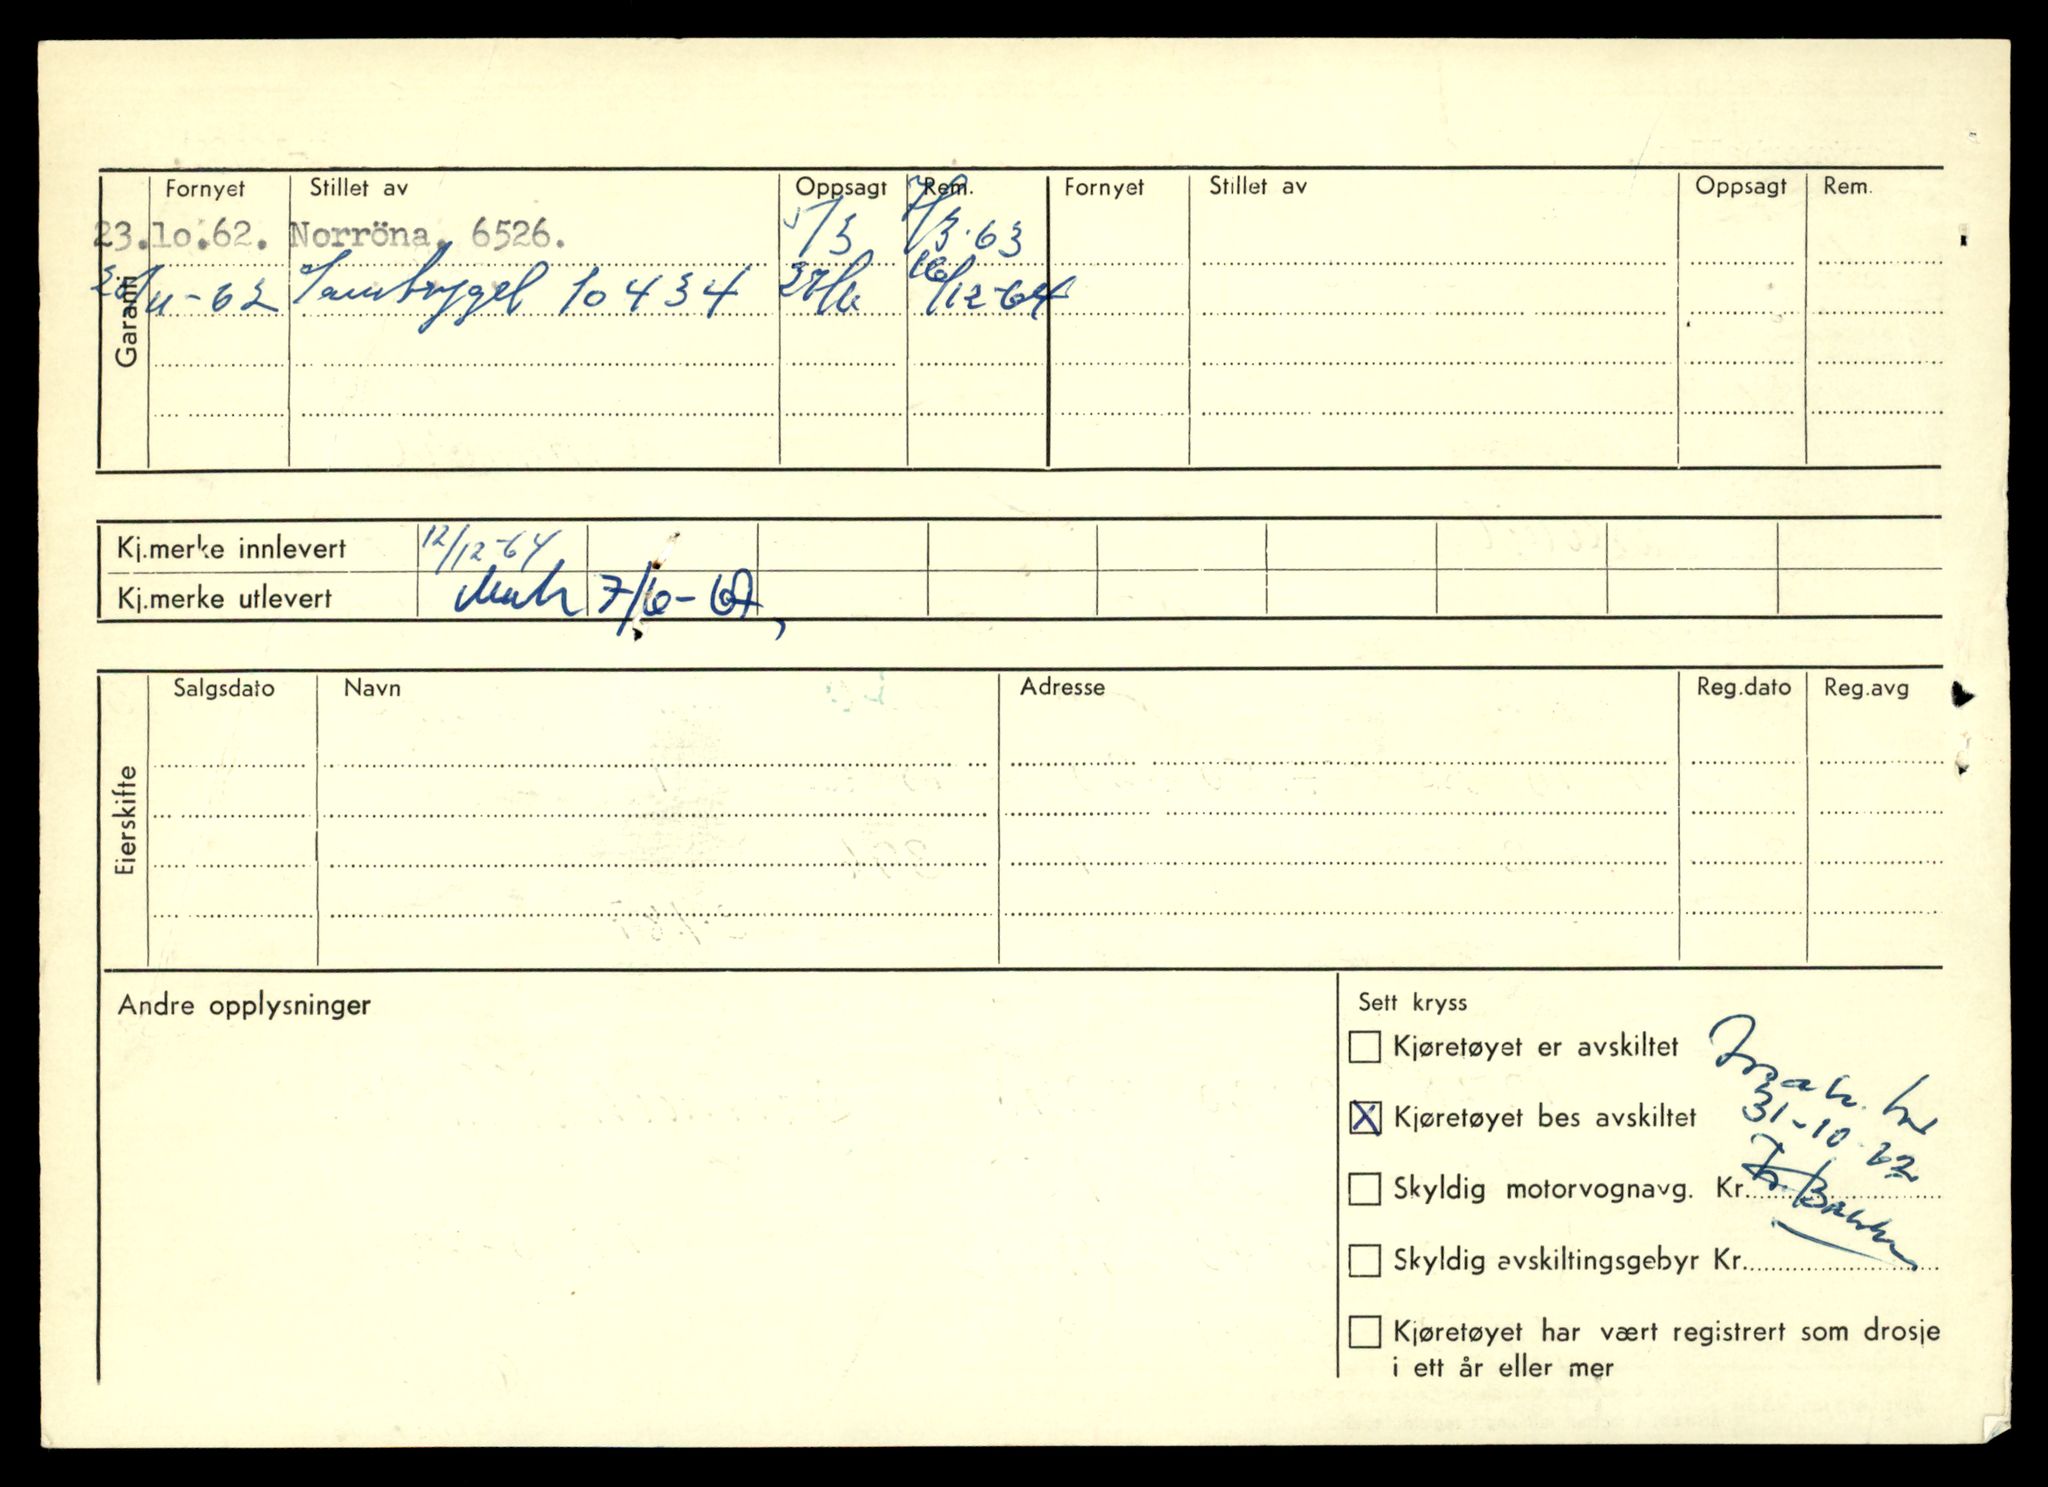 Garanti
Fornyet Stillet av Oppsagt Rem. Fornyet Stillet av Oppsagt Rem.
23.10.62. Norröna. 6526. 5/3 7/3-63
/11-62 Samtrygd 10434 16/12-64
Kj.merke innlevert 12/12-64
Kj.merke utlevert 7/6-67,
Eierskifte
Salgsdato Navn Adresse Reg.dato Reg.avg
Andre opplysninger
Sett kryss
Kjøretøyet er avskiltet
X Kjøretøyet bes avskiltet
31-10-62
Skyldig motorvognavg. Kr.
Skyldig avskiltingsgebyr Kr.
Kjøretøyet har vært registrert som drosje
i ett år eller mer